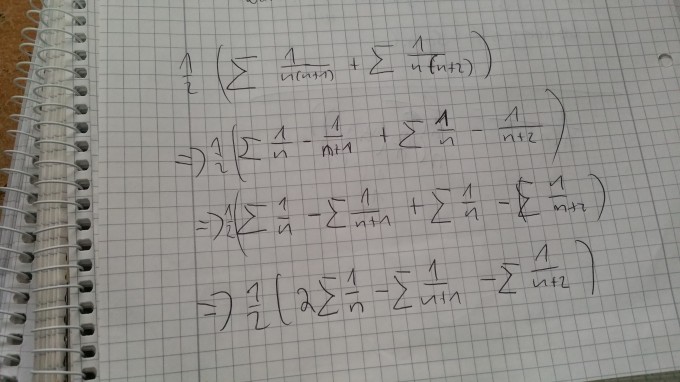 1/2 ( ∑ 1/n(n+1) + ∑ 1/n(n+2) )
=> 1/2 ( ∑ 1/n - 1/n+1 + ∑ 1/n - 1/n+2 )
=> 1/2 ( ∑ 1/n - ∑ 1/n+1 + ∑ 1/n - ∑ 1/n+2 )
=> 1/2 ( 2 ∑ 1/n - ∑ 1/n+1 - ∑ 1/n+2 )